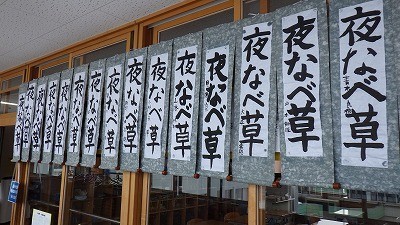 夜なべ草
夜なべ草
夜なべ草
夜なべ草
夜なべ草
夜なべ草
夜なべ草
夜なべ草
夜なべ草
夜なべ草
夜なべ草
夜なべ草
夜なべ草
夜なべ草